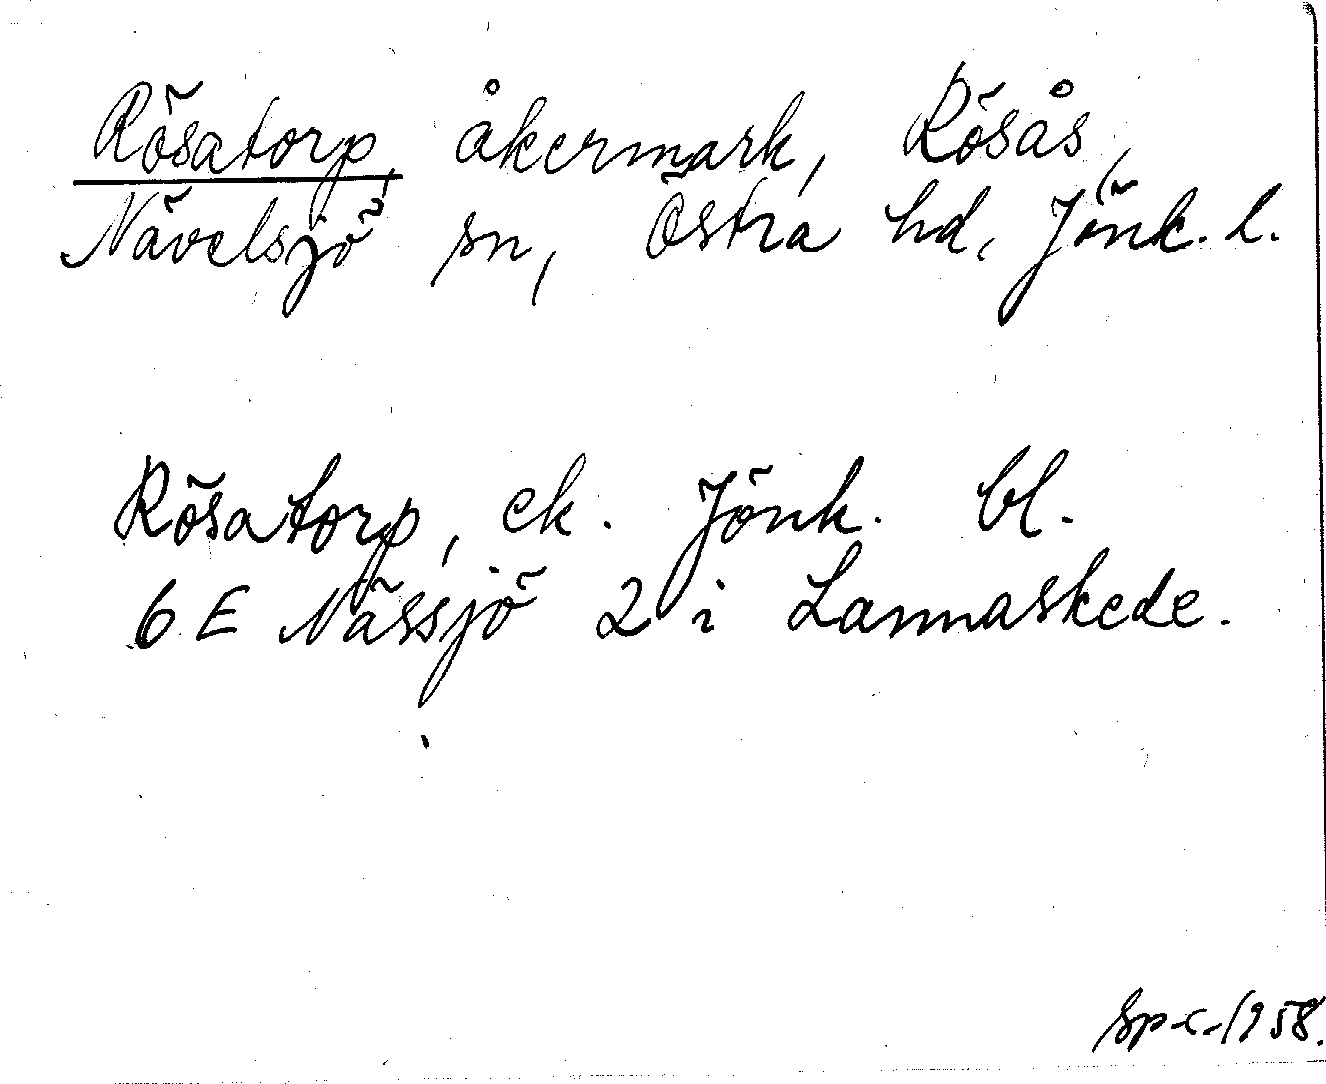 Rösatorp, åkermark, Rösås,
Nävelsjö sn, Östra hd, Jönk. l.
Rösatorp, ek. Jönk. bl.
6 E Nässjö 2 i Lannaskede.
1958.